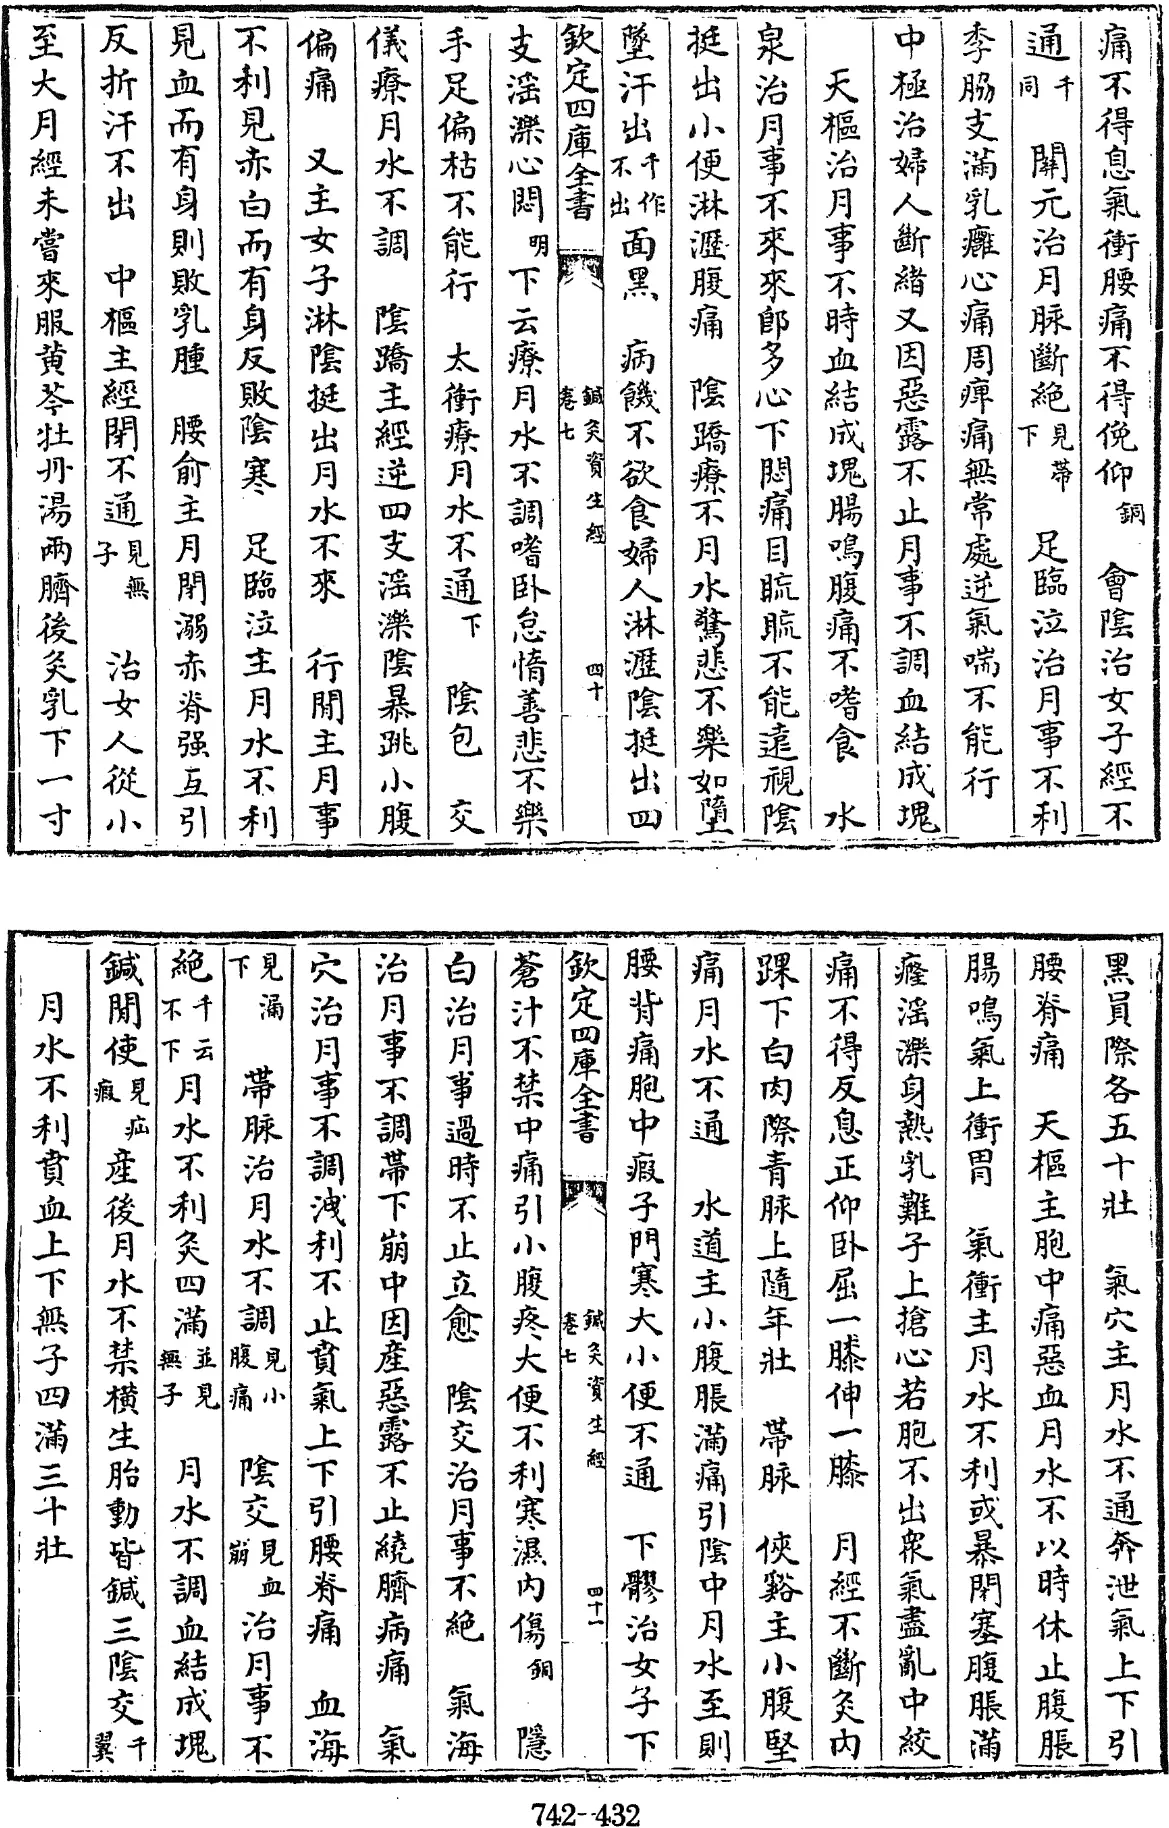 痛不得息氣衝腰痛不得俛仰銅　會陰治女子經不
通千同　關元治月脉斷絶見帶下　足臨泣治月事不利
季脇支滿乳癰心痛周痺痛無常處逆氣喘不能行
中極治婦人斷緒又因惡露不止月事不調血結成塊
天樞治月事不時血結成塊腸鳴腹痛不嗜食　水
泉治月事不來來郎多心下悶痛目䀮䀮不能遠視陰
挺出小便淋瀝腹痛　陰蹻療不月水驚悲不樂如墮
墜汗出千作不出面黑　病饑不欲食婦人淋瀝陰挺出四
欽定四庫全書　鍼灸資生經卷七　四十
支滛濼心悶明下云療月水不調嗜卧怠惰善悲不樂
手足偏枯不能行　太衝療月水不通下　陰包　交
儀療月水不調　陰蹻主經逆四支滛濼陰暴跳小腹
偏痛　又主女子淋陰挺出月水不來　行閒主月事
不利見赤白而有身反敗陰寒　足臨泣主月水不利
見血而有身則敗乳腫　腰俞主月閉溺赤脊强互引
反折汗不出　中樞主經閉不通見無子　治女人從小
至大月經未嘗來服黄芩牡丹湯兩臍後灸乳下一寸
黑員際各五十壯　氣穴主月水不通奔泄氣上下引
腰脊痛　天樞主胞中痛惡血月水不以時休止腹脹
腸鳴氣上衝胃　氣衝主月水不利或暴閉塞腹脹滿
癃滛濼身熱乳難子上搶心若胞不出衆氣盡亂中絞
痛不得反息正仰卧屈一膝伸一膝　月經不斷灸内
踝下白肉際青脉上隨年壯　帶脉　俠谿主小腹堅
痛月水不通　水道主小腹脹滿痛引陰中月水至則
腰背痛胞中瘕子門寒大小便不通　下髎治女子下
欽定四庫全書　鍼灸資生經卷七　四十一
蒼汁不禁中痛引小腹疼大便不利寒濕内傷銅　隱
白治月事過時不止立愈　陰交治月事不絶　氣海
治月事不調帶下崩中因産惡露不止繞臍㽲痛　氣
穴治月事不調洩利不止賁氣上下引腰脊痛　血海
見漏下　帶脉治月水不調見小腹痛　陰交見血崩治月事不
絶千云不下月水不利灸四滿並見無子　月水不調血結成塊
鍼閒使見疝瘕　産後月水不禁橫生胎動皆鍼三陰交千翼
月水不利賁血上下無子四滿三十壯
742-432